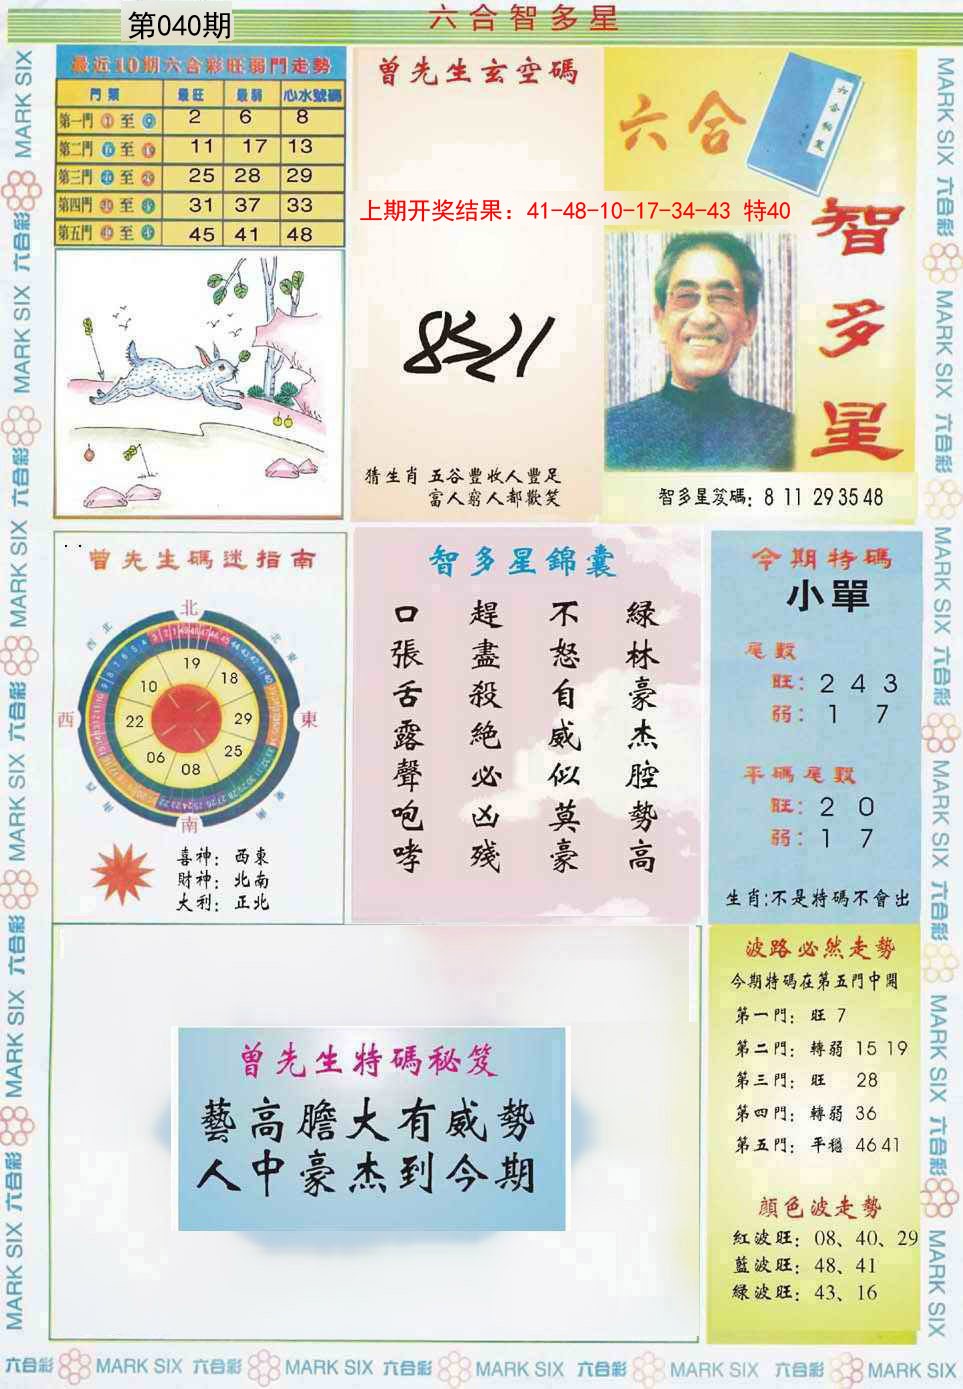 第040期
六合智多星
最近10期六合彩旺弱門走勢
門類 最旺 最弱 心水號碼
第一門 ① 至 2 6 8
第二門 至 11 17 13
第三門 至 25 28 29
第四門 至 31 37 33
第五門 至 45 41 48
曾先生玄空碼
上期开奖结果：41-48-10-17-34-43 特40
猜生肖 五谷豐收人豐足
富人窮人都歡笑
六合
智多星
智多星笈碼：8 11 29 35 48
曾先生碼迷指南
北
西 東
南
19
18
29
25
08
06
22
10
喜神：西東
財神：北南
大利：正北
智多星錦囊
綠林豪杰腔勢高
不怒自威似莫豪
趕盡殺絕必凶殘
口張舌露聲咆哮
今期特碼
小單
尾數
旺：2 4 3
弱：1 7
平碼尾數
旺：2 0
弱：1 7
生肖:不是特碼不會出
曾先生特碼秘笈
藝高膽大有威勢
人中豪杰到今期
波路必然走勢
今期特碼在第五門中開
第一門：旺 7
第二門：轉弱 15 19
第三門：旺 28
第四門：轉弱 36
第五門：平穩 46 41
顏色波走勢
紅波旺：08、40、29
藍波旺：48、41
綠波旺：43、16
MARK SIX 六合彩 MARK SIX 六合彩 MARK SIX 六合彩 MARK SIX 六合彩 MARK SIX 六合彩 MARK SIX
MARK SIX 六合彩 MARK SIX 六合彩 MARK SIX 六合彩 MARK SIX 六合彩 MARK SIX 六合彩 MARK SIX
六合彩 MARK SIX 六合彩 MARK SIX 六合彩 MARK SIX 六合彩 MARK SIX 六合彩 MARK SIX